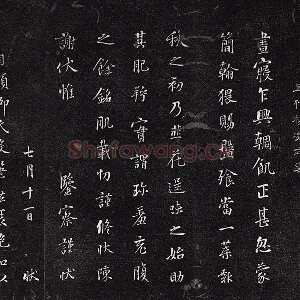 晝寢乍興輖飢正甚忽蒙
簡翰猥賜盤飧當一葉報
秋之初乃韭花逞味之始助
其肥羜實謂珍羞充腹
之餘銘肌載切謹修狀陳
謝伏惟 鑒察謹狀
七月十一日 狀
Shufawang.cn